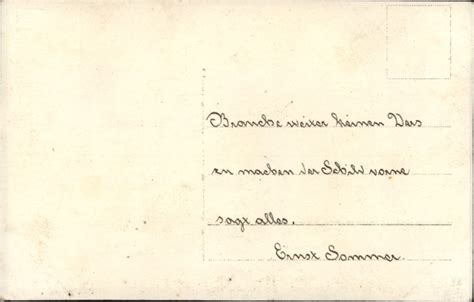 Brauche weiter keinen Vers
zu machen der Schild vorne
sagt alles.
Ernst Sommer.